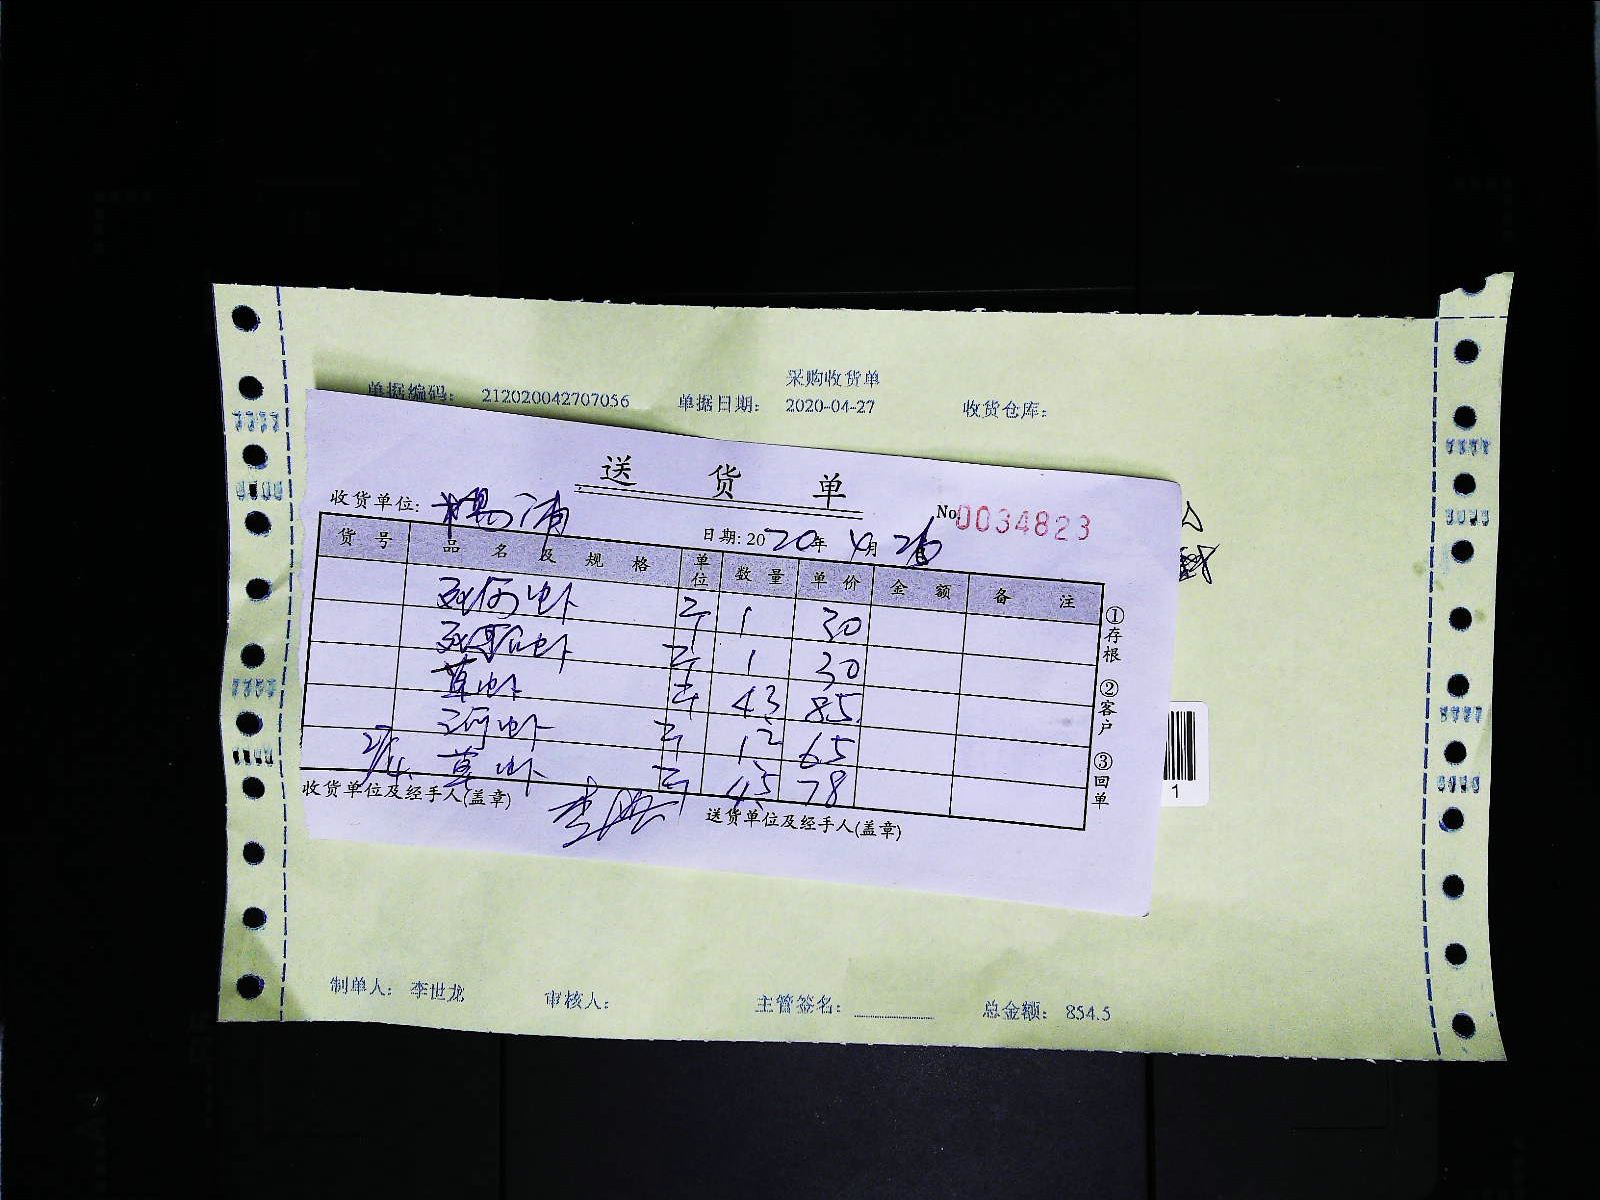 采购收货单
单据编码： 212020042707056 单据日期： 2020-04-27 收货仓库：
送 货 单
收货单位: 杨浦 No. 0034823
日期: 2020年 4月 26
货 号 品 名 及 规 格 单位 数 量 单 价 金 额 备 注
死河虾 斤 1 30
死河虾 斤 1 30
草虾 斤 4.3 85
河虾 斤 12 65
27/4. 草虾 斤 4.5 78
①存根 ②客户 ③回单
收货单位及经手人(盖章) 送货单位及经手人(盖章)
1
制单人： 李世龙 审核人： 主管签名： 总金额： 854.5